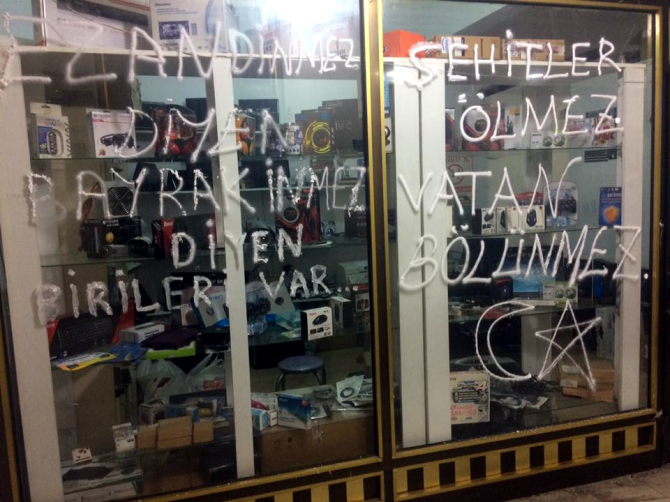 EZAN DİNMEZ
DİYEN
BAYRAK İNMEZ
DİYEN
BİRİLERİ VAR
ŞEHİTLER
ÖLMEZ
VATAN
BÖLÜNMEZ